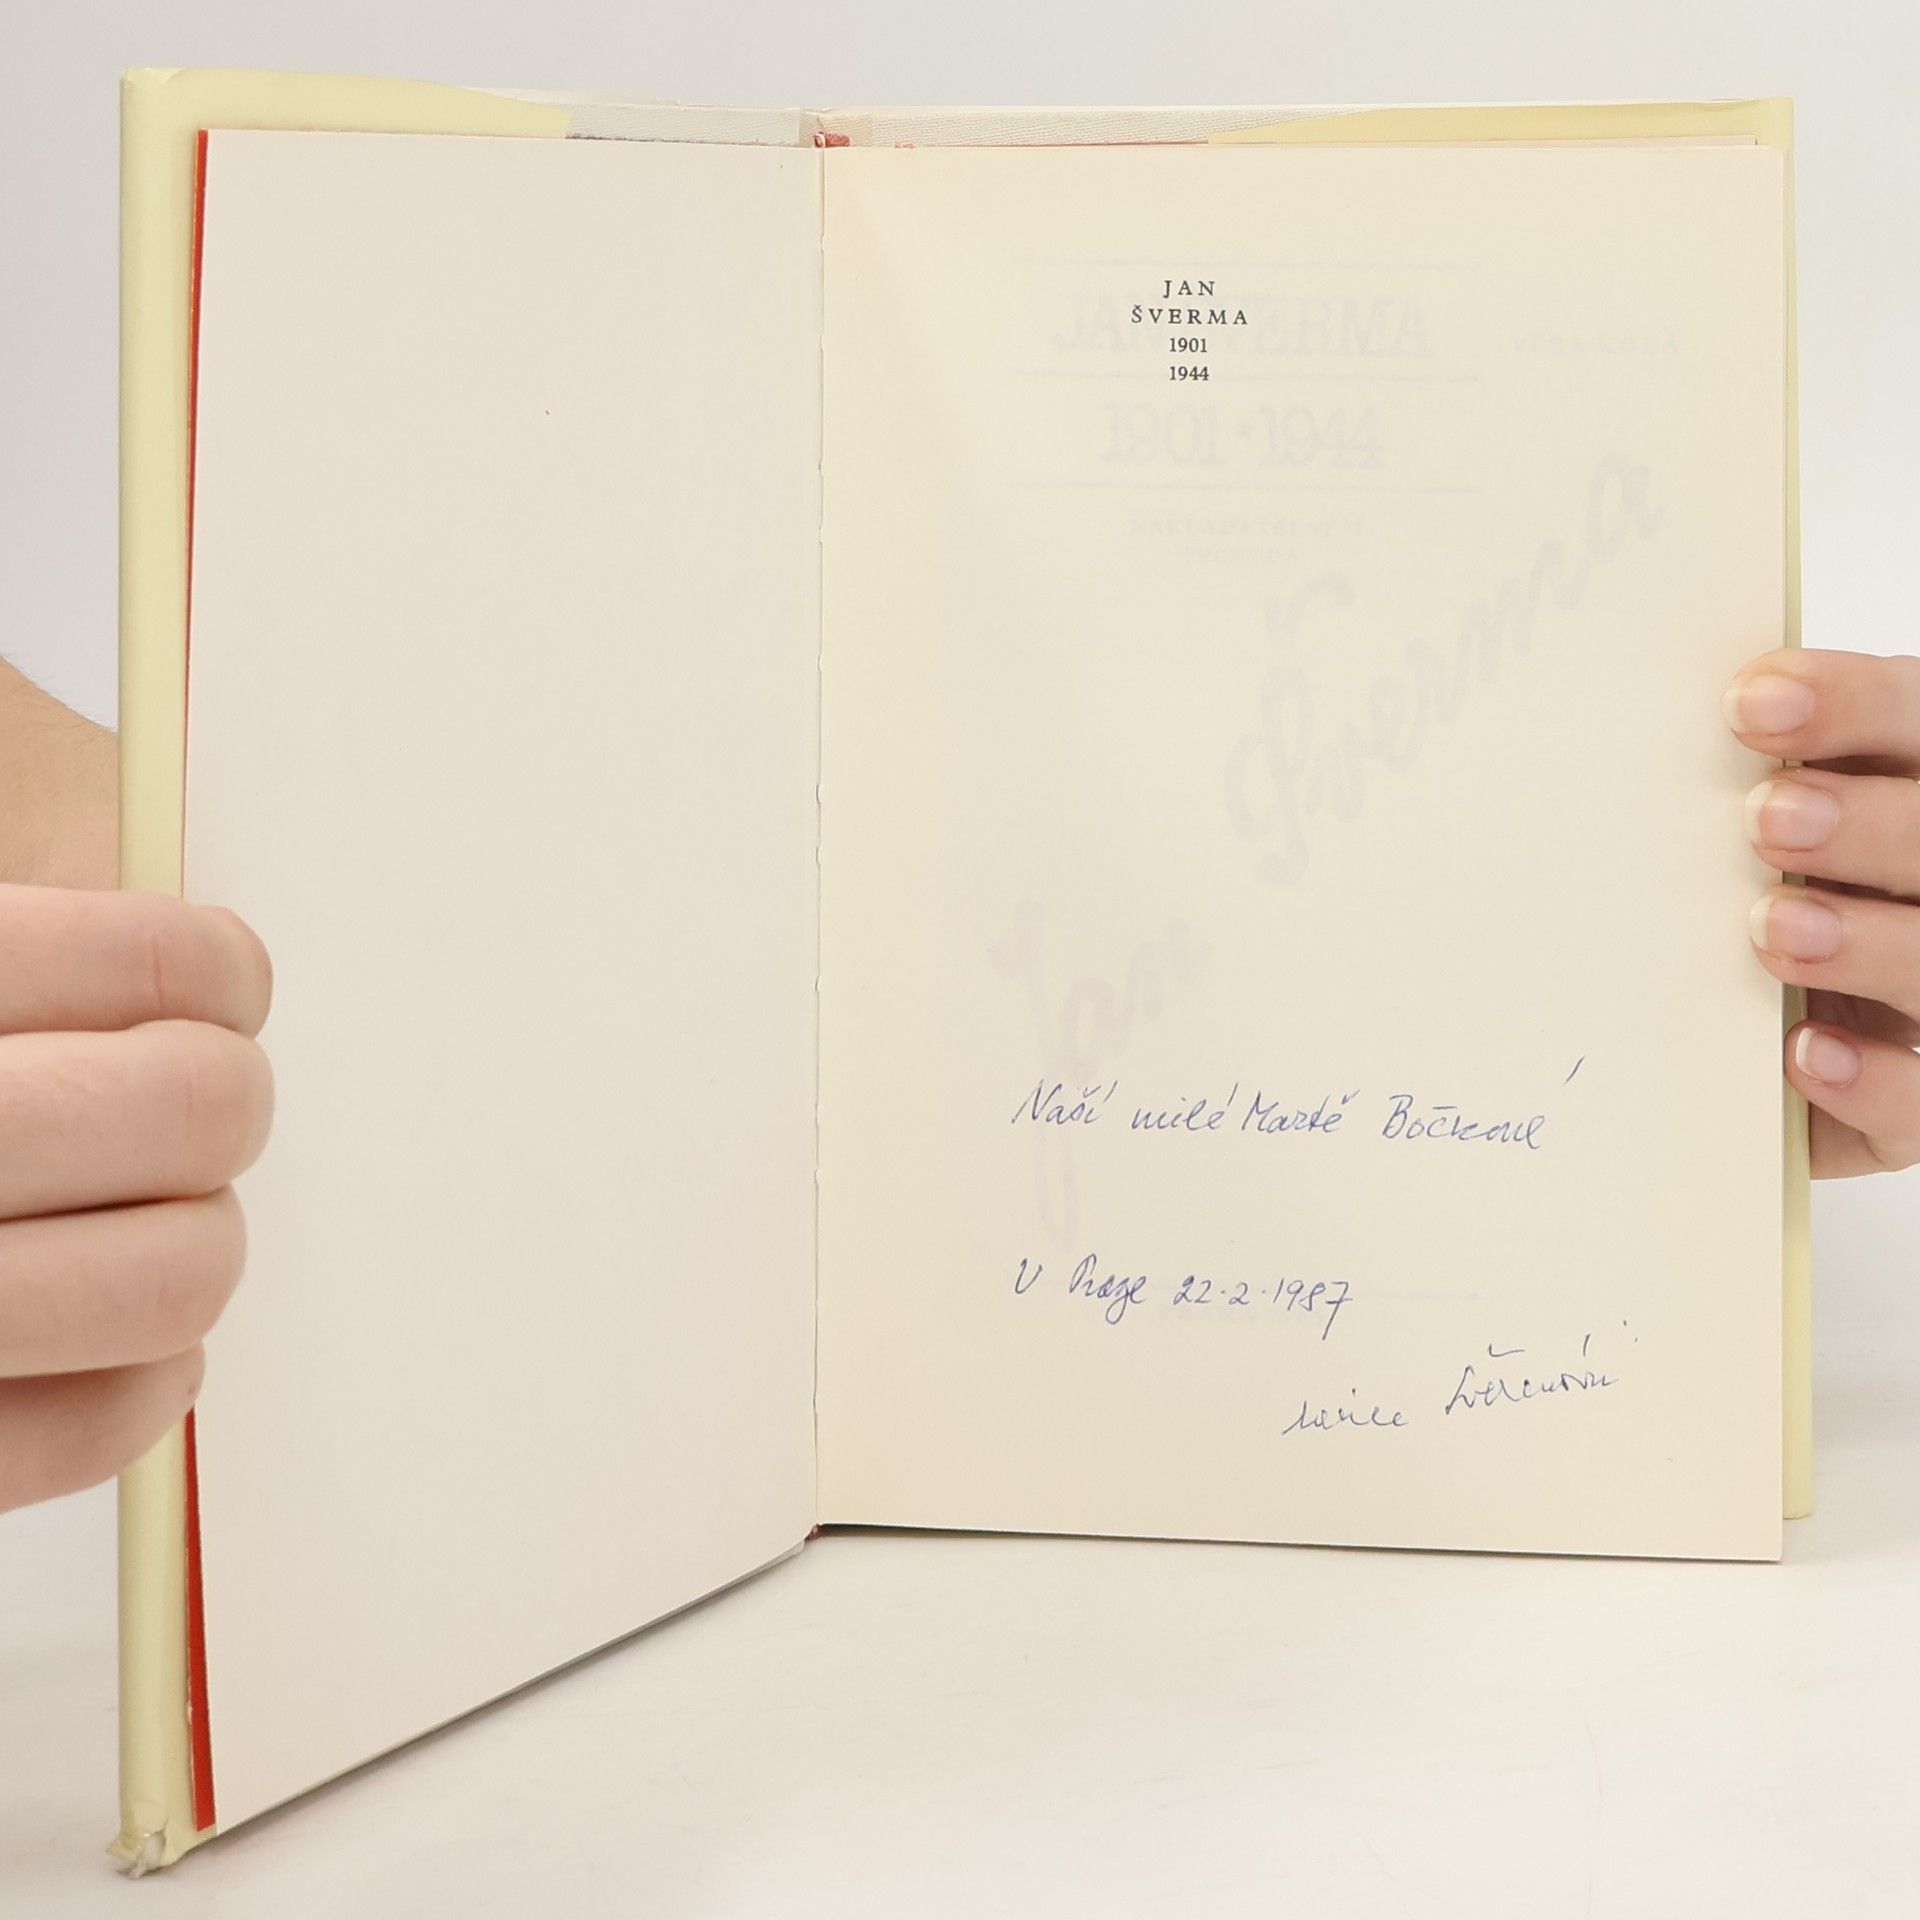 JAN
ŠVERMA
1901
1944
Naší milé Martě Bočkové
V Praze 22.2.1987